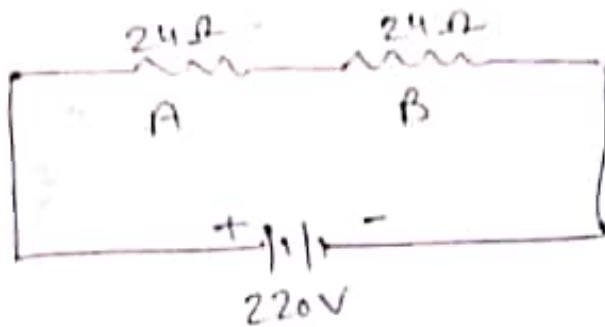 24Ω 24Ω
A B
+ -
220V